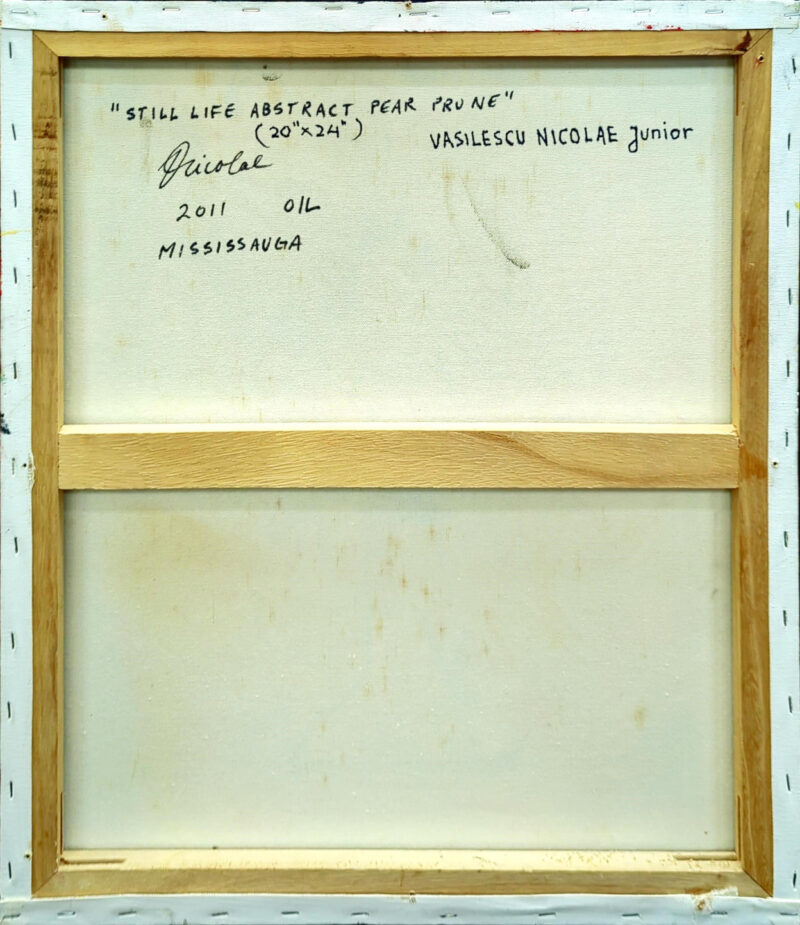 "STILL LIFE ABSTRACT PEAR PRUNE"
(20"x24")
VASILESCU NICOLAE Junior
Nicolae
2011 OIL
MISSISSAUGA